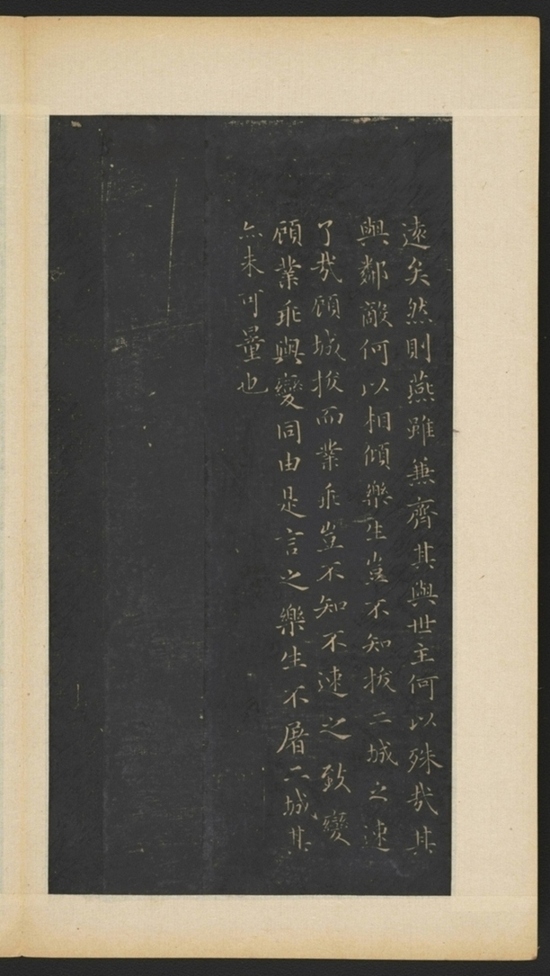 遠矣然則燕雖兼齊其與世主何以殊哉其
與鄰敵何以相傾樂生豈不知拔二城之速
了哉顧城拔而業乖豈不知不速之致變
顧業乖與變同由是言之樂生不屠二城其
亦未可量也